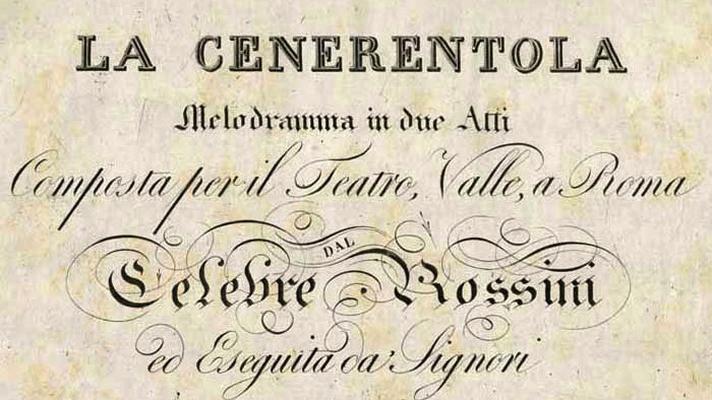 LA CENERENTOLA
Melodramma in due Atti
Composta per il Teatro, Valle, a Roma
DAL
Celebre Rossini
ed Eseguita da' Signori